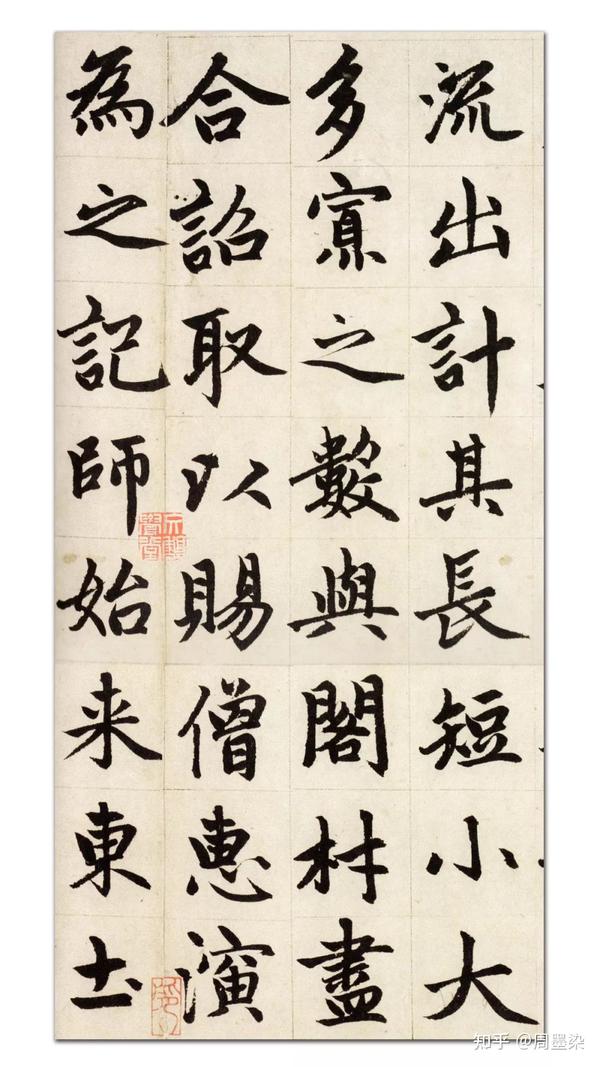 流出計其長短小大
多寡之數與閣材盡
合詔取以賜僧惠演
為之記師始来東土
知乎 @周墨染